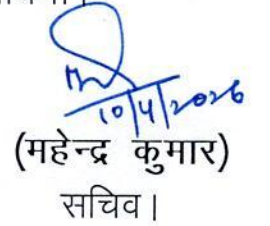 10/4/2026
(महेन्द्र कुमार)
सचिव।